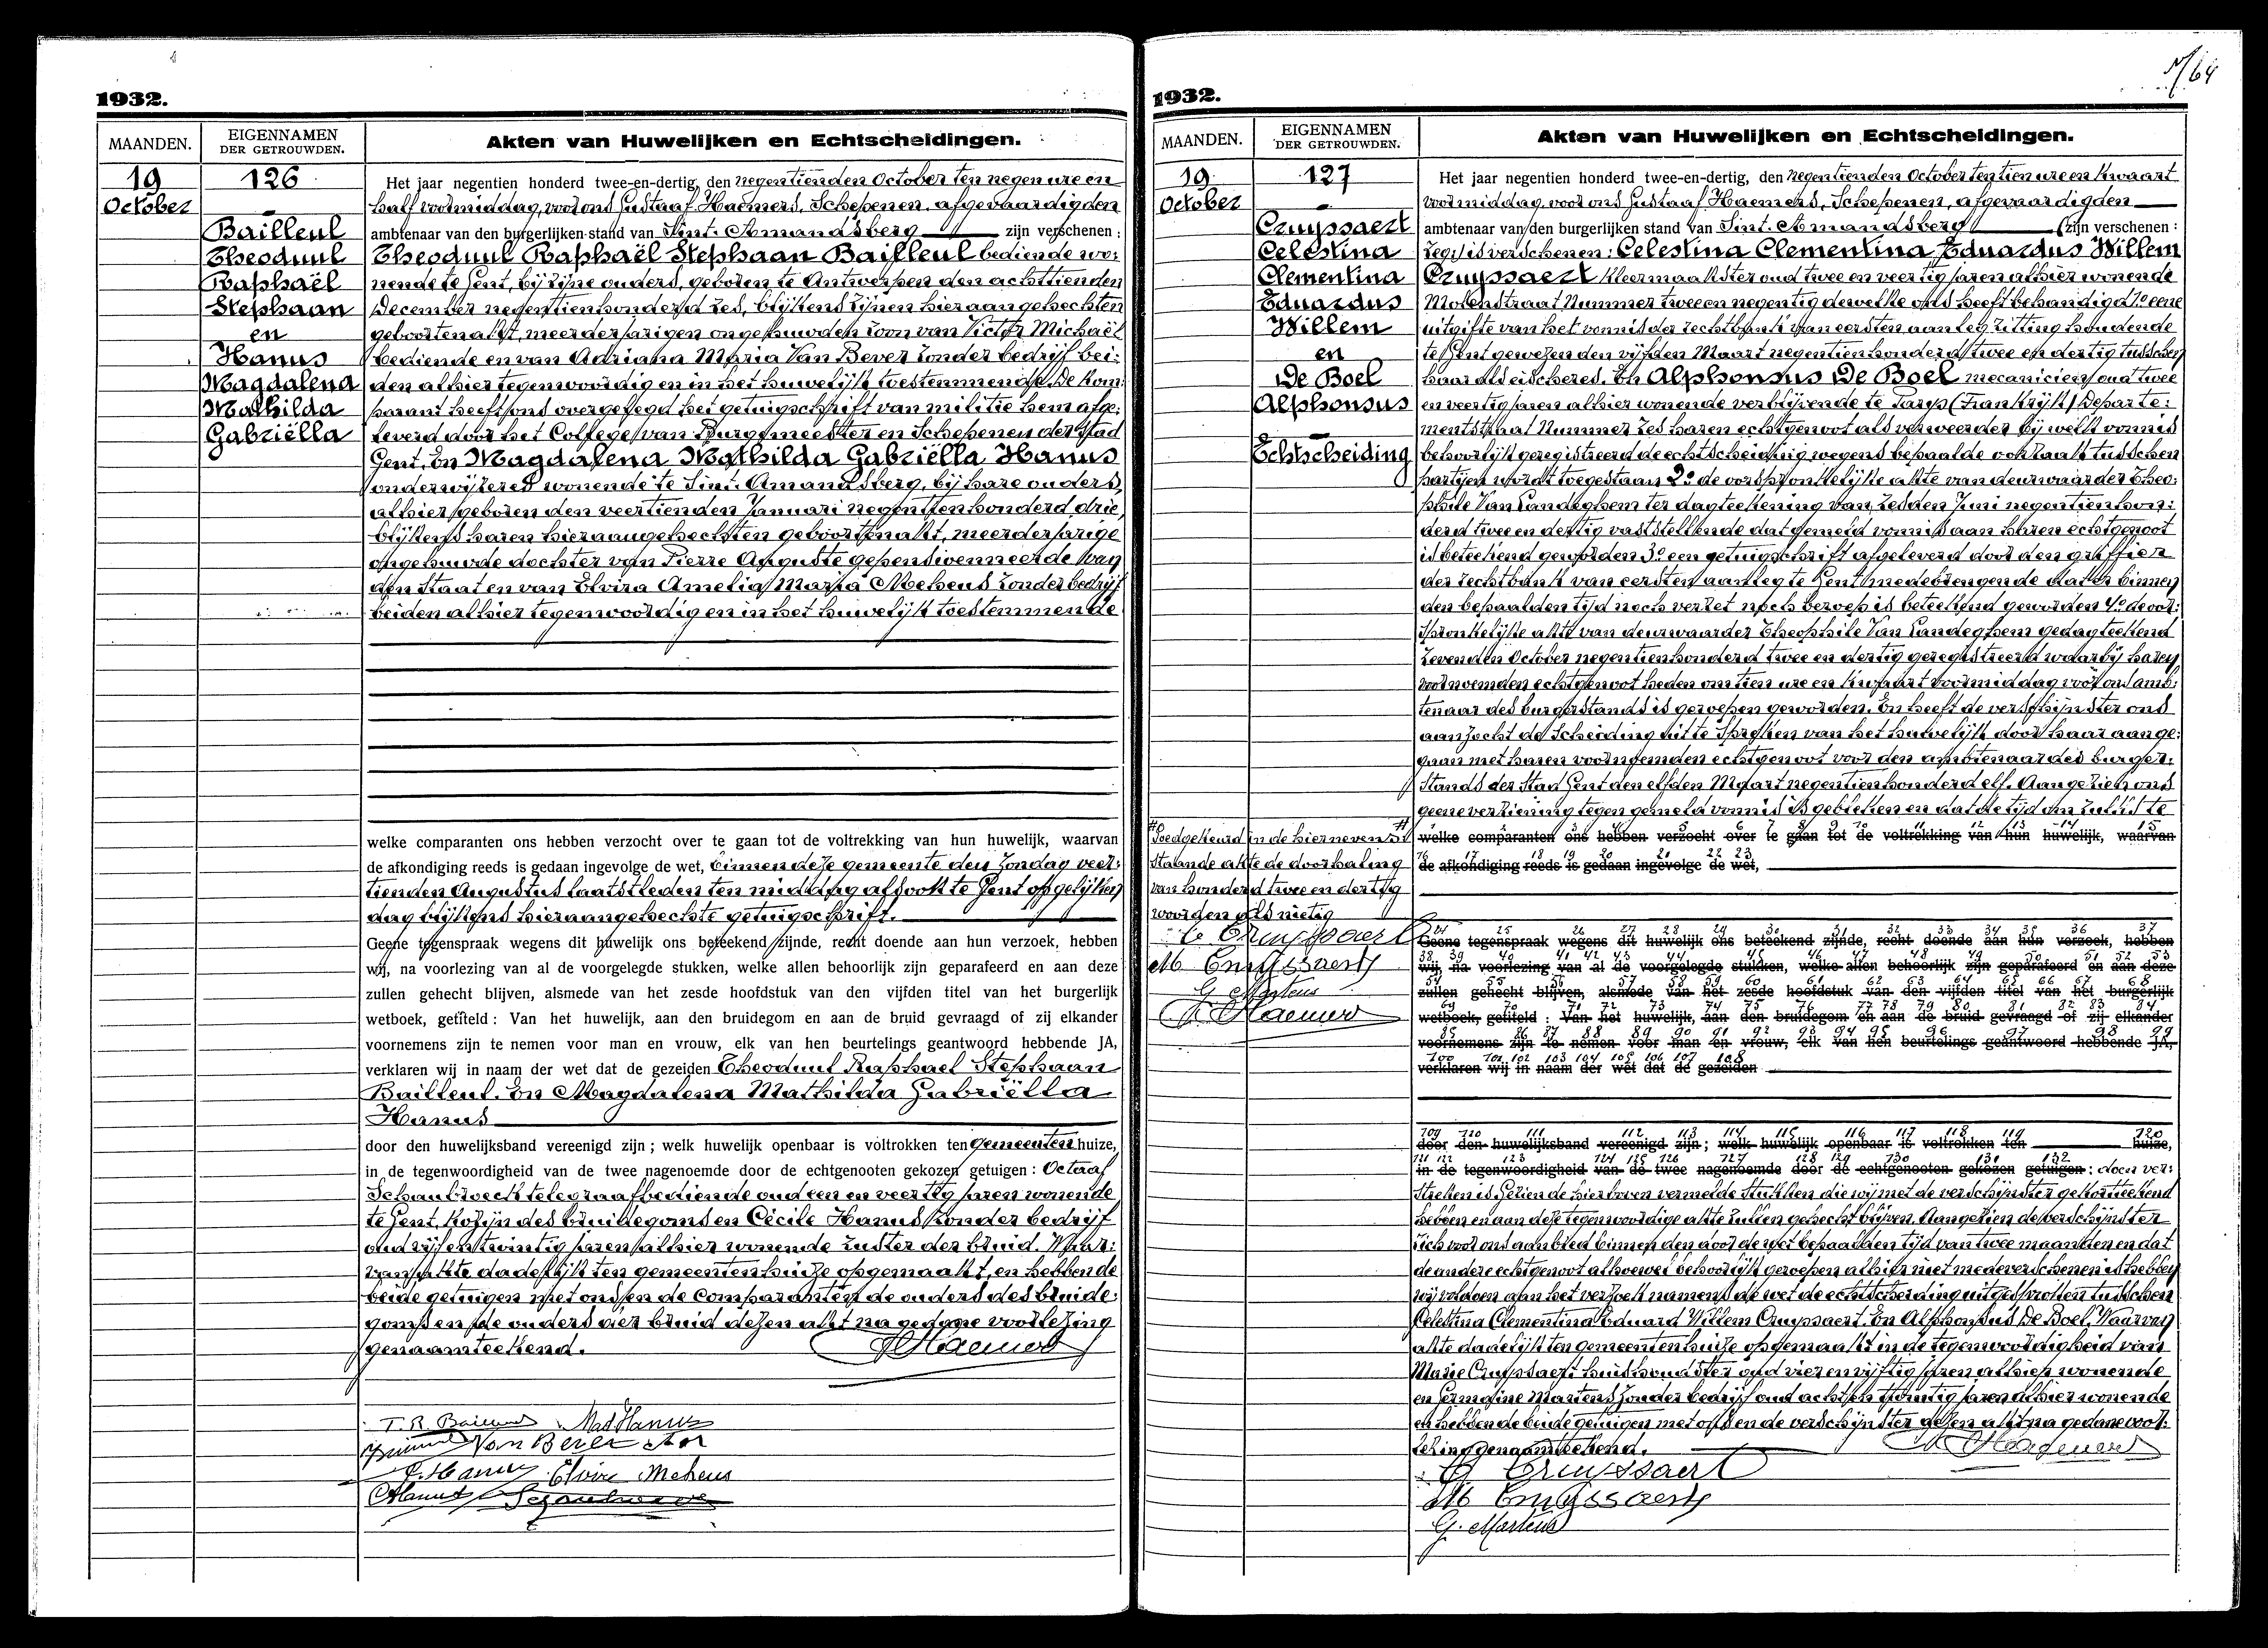 1932.
MAANDEN.
EIGENNAMEN
DER GETROUWDEN.
Akten van Huwelijken en Echtscheidingen.
19
October
126
Bailleul
Theoduul
Raphaël
Stephaan
en
Hanus
Magdalena
Mathilda
Gabriëlla
Het jaar negentien honderd twee-en-dertig, den negentienden October ten negen ure en
half voormiddag, voor ons Gustaaf Haemers, Schepenen, afgevaardigden
ambtenaar van den burgerlijken stand van Sint-Amandsberg zijn verschenen :
Theoduul Raphaël Stephaan Bailleul bediende wo:
nende te Gent, bij zijne ouders, geboren te Antwerpen den achttienden
December negentienhonderd zes, blijkens zijnen hieraangehechten
geboortenakt, meerderjarigen ongehuwden zoon van Victor Michaël
bediende en van Adriana Maria Van Bever zonder bedrijf bei:
den alhier tegenwoordig en in het huwelijk toestemmende. De kom:
parant heeft ons overgelegd het getuigschrift van militie hem afge:
leverd door het College van Burgemeester en Schepenen der Stad
Gent. En Magdalena Mathilda Gabriëlla Hanus
onderwijzeres wonende te Sint-Amandsberg, bij hare ouders,
alhier geboren den veertienden Januari negentienhonderd drie,
blijkens haren hieraangehechten geboortenakt, meerderjarige
ongehuwde dochter van Pierre Auguste gepensioenneerde van
den Staat en van Elvira Amelia Maria Meheus zonder bedrijf
beiden alhier tegenwoordig en in het huwelijk toestemmende
welke comparanten ons hebben verzocht over te gaan tot de voltrekking van hun huwelijk, waarvan
de afkondiging reeds is gedaan ingevolge de wet, binnen deze gemeente den Zondag veer:
tienden Augustus laatstleden ten middag alsook te Gent op gelijken
dag blijkens hieraangehechte getuigschrift.
Geene tegenspraak wegens dit huwelijk ons beteekend zijnde, recht doende aan hun verzoek, hebben
wij, na voorlezing van al de voorgelegde stukken, welke allen behoorlijk zijn geparafeerd en aan deze
zullen gehecht blijven, alsmede van het zesde hoofdstuk van den vijfden titel van het burgerlijk
wetboek, getiteld : Van het huwelijk, aan den bruidegom en aan de bruid gevraagd of zij elkander
voornemens zijn te nemen voor man en vrouw, elk van hen beurtelings geantwoord hebbende JA,
verklaren wij in naam der wet dat de gezeiden Theoduul Raphael Stephaan
Bailleul. En Magdalena Mathilda Gabriëlla
Hanus
door den huwelijksband vereenigd zijn ; welk huwelijk openbaar is voltrokken ten gemeentenhuize,
in de tegenwoordigheid van de twee nagenoemde door de echtgenooten gekozen getuigen : Octaaf
Schaubroeck telegraafbediende oud een en veertig jaren wonende
te Gent, kozijn des bruidegoms en Cécile Hanus zonder bedrijf
oud vijf en twintig jaren alhier wonende zuster der bruid. Waar:
van akte dadelijk ten gemeentenhuize opgemaakt, en hebben de
beide getuigen met ons en de comparanten de ouders des bruide:
goms en de ouders der bruid dezen akt na gedane voorlezing
genaamteekend.
Haemers
T. R. Bailleul Mad Hanus
Van Bever
P. Hanus Elvire Meheus
C Hanus Schaubroeck
1932.
MAANDEN.
EIGENNAMEN
DER GETROUWDEN.
Akten van Huwelijken en Echtscheidingen.
19
October
127
Cruyssaert
Celestina
Clementina
Eduardus
Willem
en
De Boel
Alphonsus
Echtscheiding
Het jaar negentien honderd twee-en-dertig, den negentienden October ten tien ure en kwaart
voormiddag, voor ons Gustaaf Haemers, Schepenen, afgevaardigden
ambtenaar van den burgerlijken stand van Sint-Amandsberg (zijn verschenen :
zegt) is verschenen : Celestina Clementina Eduardus Willem
Cruyssaert kleermaakster oud twee en veertig jaren alhier wonende
Molenstraat Nummer twee en negentig dewelke ons heeft behandigd 1º eene
uitgifte van het vonnis der rechtbank van eersten aanleg zitting houdende
te Gent gewezen den vijfden Maart negentienhonderd twee en dertig tusschen
haar als eischeres. En Alphonsus De Boel mecanicien oud twee
en veertig jaren alhier wonende verblijvende te Parijs (Frankrijk) Departe:
mentstraat Nummer zes haren echtgenoot als verweerder bij welk vonnis
behoorlijk geregistreerd de echtscheiding wegens bepaalde oorzaak tusschen
partijen wordt toegestaan 2º de oorspronkelijke akte van deurwaarder Theo:
phile Van Landeghem ter dagteekening van zesden Juni negentienhon:
derd twee en dertig vaststellende dat gemeld vonnis aan haren echtgenoot
is beteekend geworden 3º een getuigschrift afgeleverd door den griffier
der rechtbank van eersten aanleg te Gent medebrengende dat er binnen
den bepaalden tijd noch verzet noch beroep is beteekend geworden 4º de oor:
spronkelijke akte van deurwaarder Theophile Van Landeghem gedagteekend
zevenden October negentienhonderd twee en dertig geregistreerd waarbij haren
voornoemden echtgenoot heden om tien ure en kwaart voormiddag voor ons amb:
tenaar des burgerstands is geroepen geworden. En heeft de verschijnster ons
aanzocht de scheiding uit te spreken van het huwelijk door haar aange:
gaan met haren voornoemden echtgenoot voor den ambtenaar des burger:
stands der Stad Gent den elfden Maart negentienhonderd elf. Aangezien ons
geene verziening tegen gemeld vonnis is gebleken en dat de tijd om zulks te
welke comparanten ons hebben verzocht over te gaan tot de voltrekking van hun huwelijk, waarvan
de afkondiging reeds is gedaan ingevolge de wet,
Goedgekeurd in de hiernevens
staande akte de doorhaling
van honderd twee en dertig
woorden als nietig
C Cruyssaert
M Cruyssaert
G Martens
Haemers
Geene tegenspraak wegens dit huwelijk ons beteekend zijnde, recht doende aan hun verzoek, hebben
wij, na voorlezing van al de voorgelegde stukken, welke allen behoorlijk zijn geparafeerd en aan deze
zullen gehecht blijven, alsmede van het zesde hoofdstuk van den vijfden titel van het burgerlijk
wetboek, getiteld : Van het huwelijk, aan den bruidegom en aan de bruid gevraagd of zij elkander
voornemens zijn te nemen voor man en vrouw, elk van hen beurtelings geantwoord hebbende JA,
verklaren wij in naam der wet dat de gezeiden
door den huwelijksband vereenigd zijn ; welk huwelijk openbaar is voltrokken ten huize,
in de tegenwoordigheid van de twee nagenoemde door de echtgenooten gekozen getuigen : doen ver:
streken is. Gezien de hierboven vermelde stukken die wij met de verschijnster gekorteekend
hebben en aan deze tegenwoordige akte zullen gehecht blijven. Aangezien de verschijnster
zich voor ons aanbied binnen den door de wet bepaalden tijd van twee maanden en dat
de andere echtgenoot alhoewel behoorlijk geroepen alhier niet medeverschenen is hebben
wij voldoen aan het verzoek namens de wet de echtscheiding uitgesproken tusschen
Celestina Clementina Eduard Willem Cruyssaert. En Alphonsus De Boel. Waarvan
akte dadelijk ten gemeentenhuize opgemaakt in de tegenwoordigheid van
Marie Cruyssaert huishoudster oud vier en vijftig jaren alhier wonende
en Germaine Martens zonder bedrijf oud acht en twintig jaren alhier wonende
en hebben de beide getuigen met ons en de verschijnster dezen akt na gedane voor:
lezing genaamteekend.
Haemers
C Cruyssaert
M Cruyssaert
G. Martens